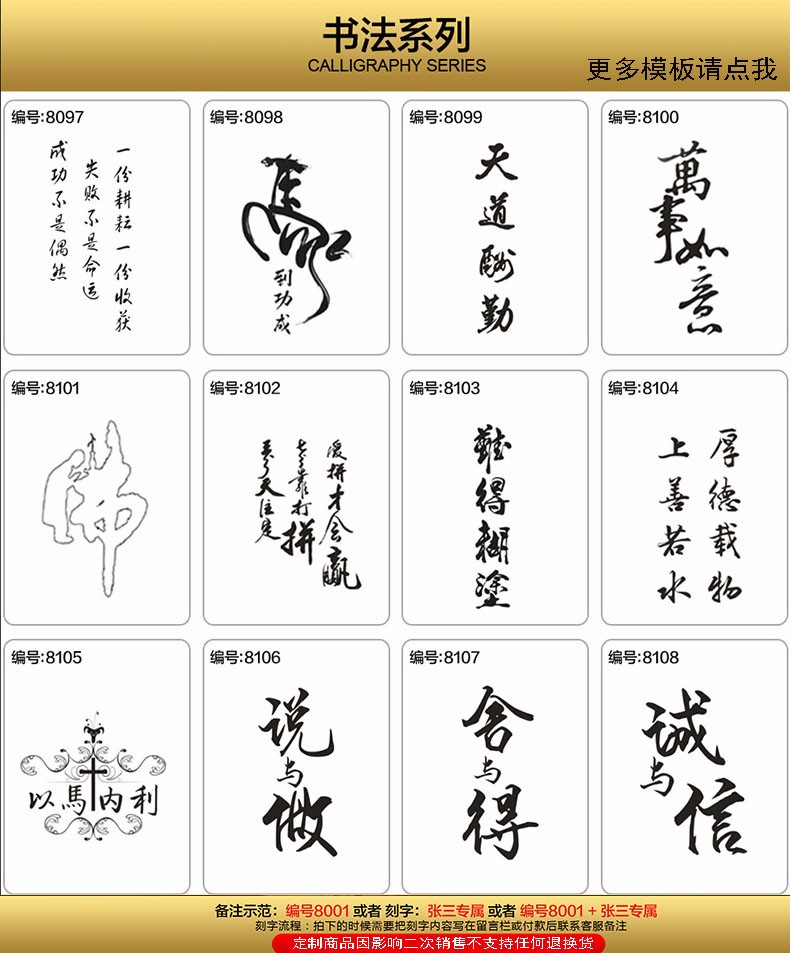 书法系列
CALLIGRAPHY SERIES
更多模板请点我
编号:8097
一份耕耘一份收获
失败不是命运
成功不是偶然
编号:8098
馬
到功成
编号:8099
天道酬勤
编号:8100
萬事如意
编号:8101
佛
编号:8102
爱拼才会赢
七分靠打拼
三分天注定
编号:8103
難得糊塗
编号:8104
厚德载物
上善若水
编号:8105
以馬内利
编号:8106
说与做
编号:8107
舍与得
编号:8108
诚与信
备注示范：编号8001 或者 刻字：张三专属 或者 编号8001 + 张三专属
刻字流程：拍下的时候需要把刻字内容写在留言栏或付款后联系客服备注
定制商品因影响二次销售不支持任何退换货